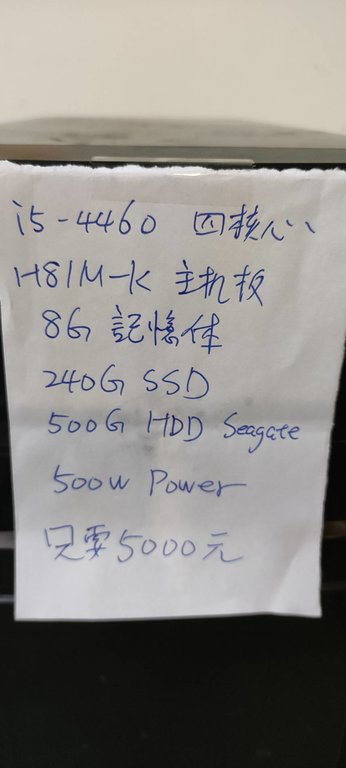 i5-4460 四核心
H81M-K 主机板
8G 記憶体
240G SSD
500G HDD Seagate
500W Power
只要5000元